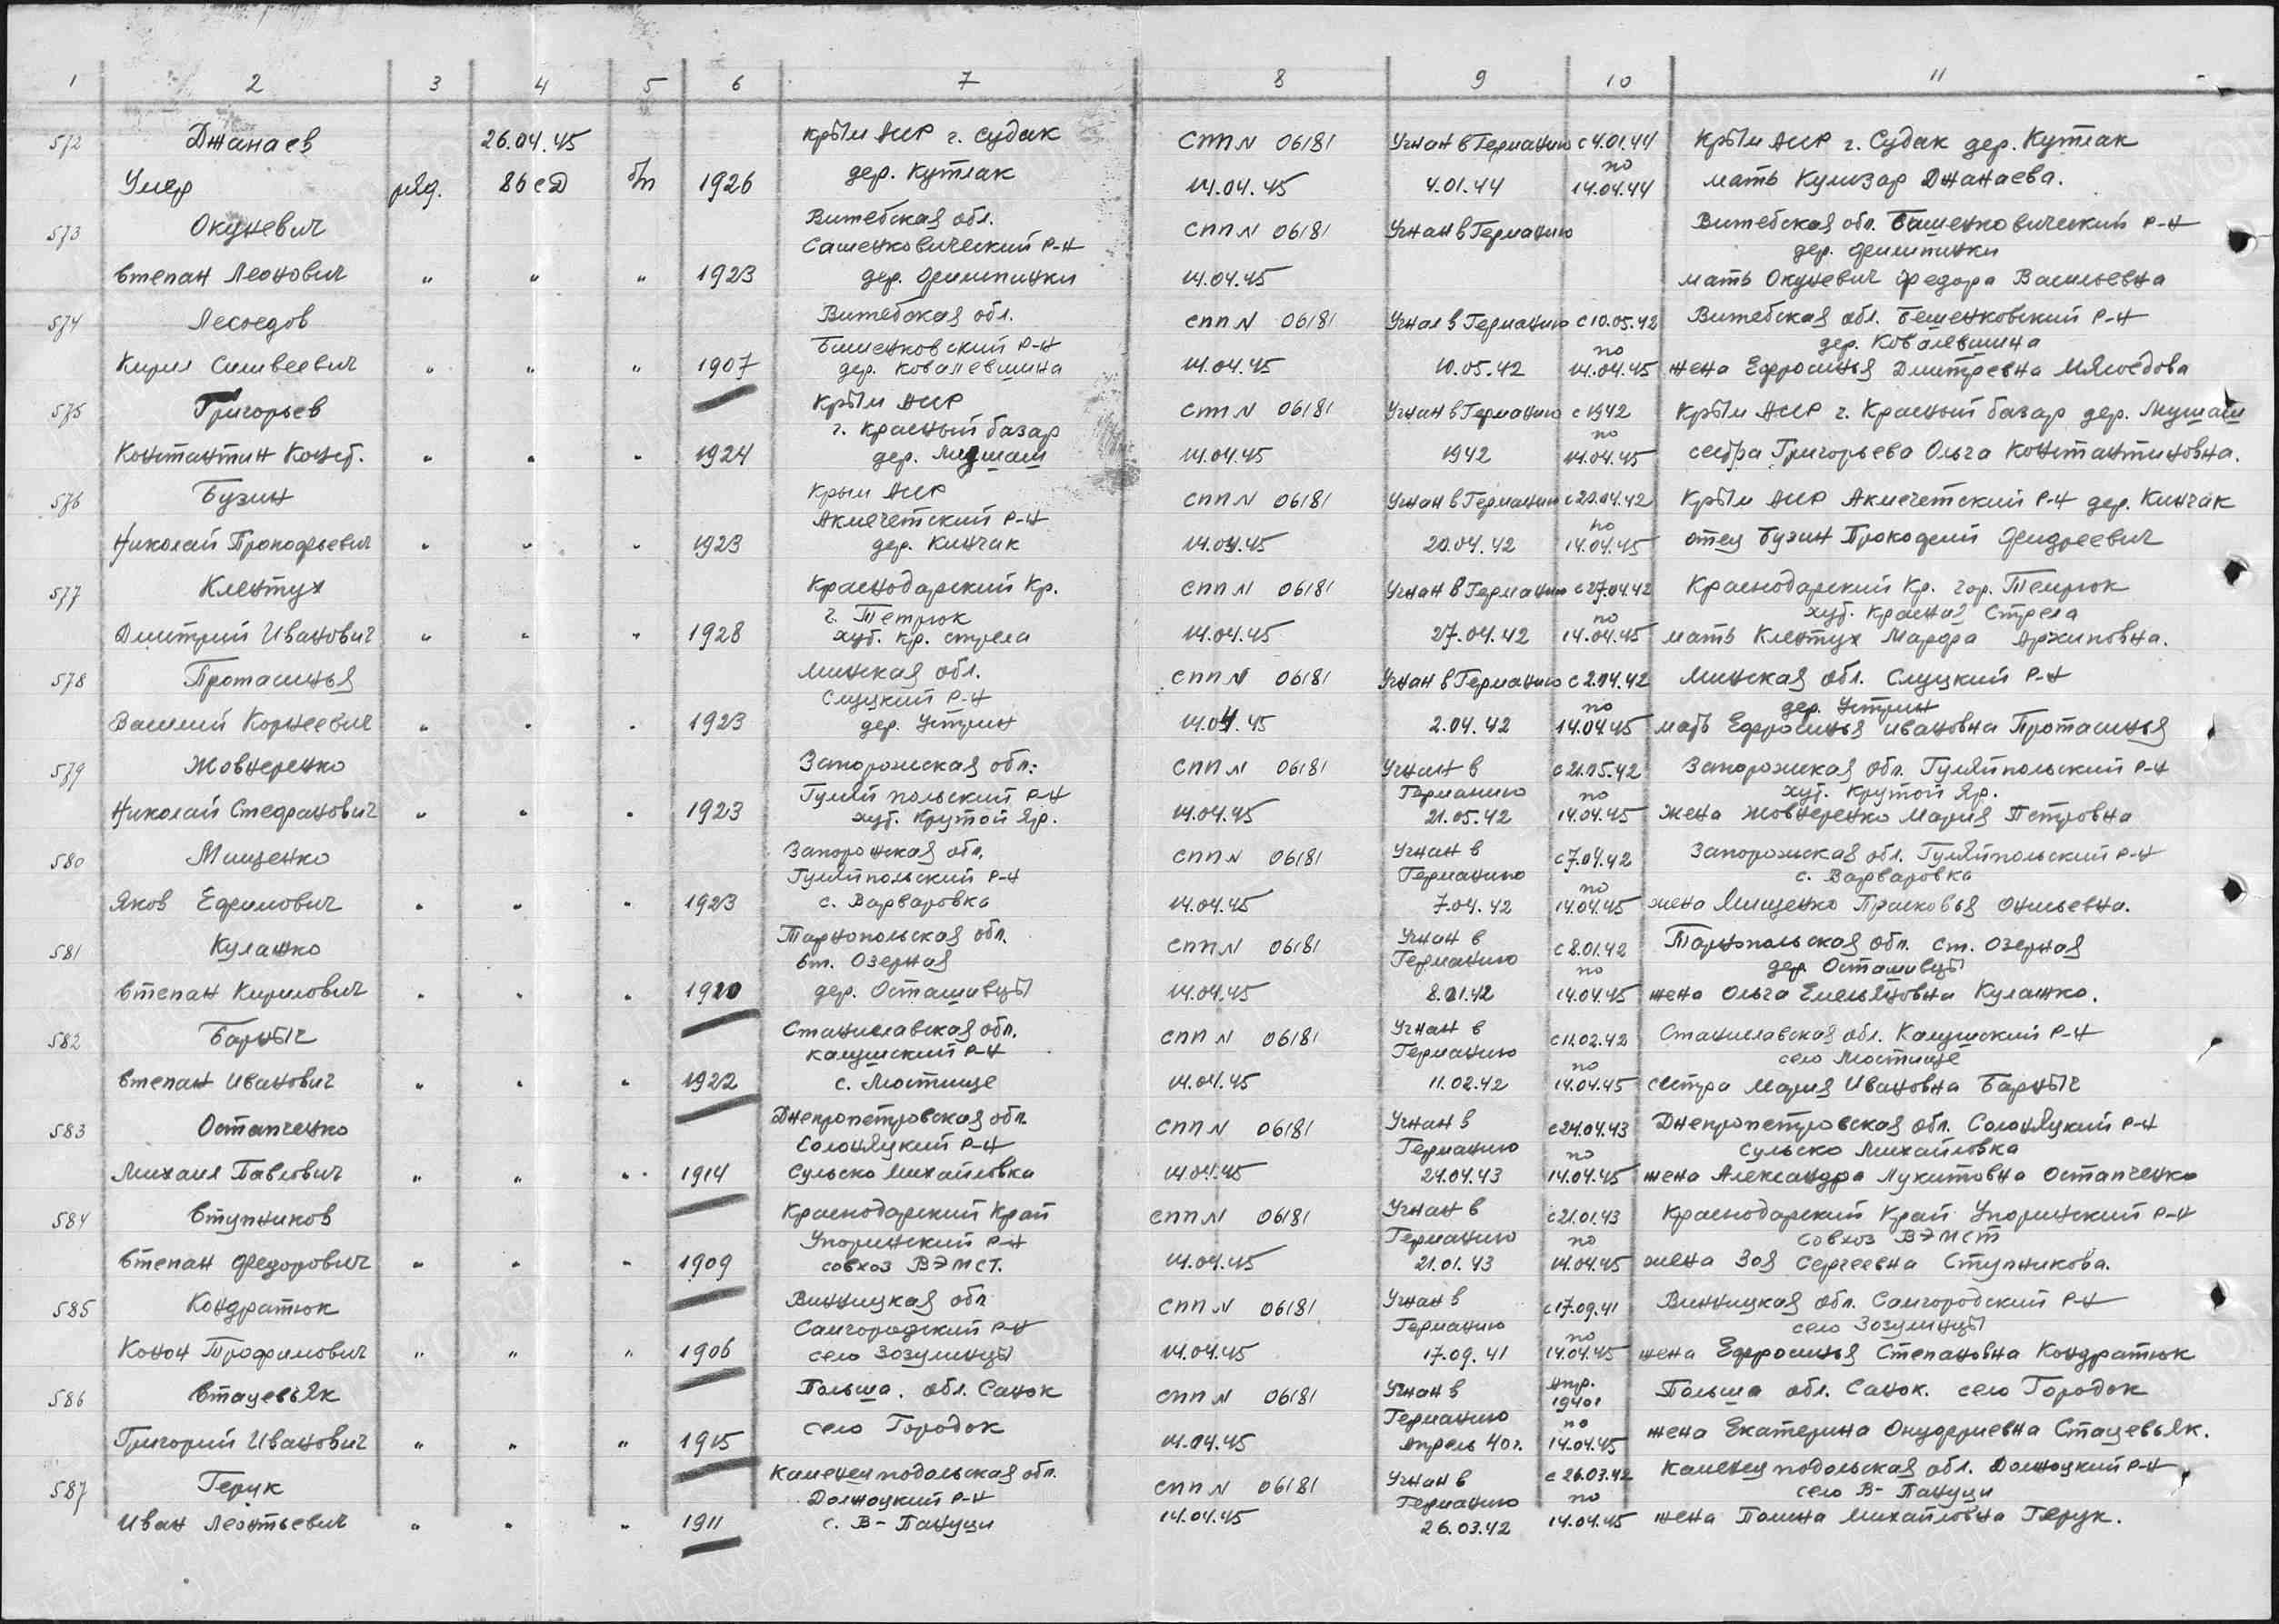 1 2 3 4 5 6 7 8 9 10 11
572 Джанаев 26.04.45 Крым АССР г. Судак СПП N 06181 Угнан в Германию с 4.01.44 Крым АССР г. Судак дер. Кутлак
по
Умер ряд. 86 сД б/п 1926 дер. Кутлак 14.04.45 4.01.44 14.04.44 мать Кулизар Джанаева.
573 Окуневич Витебская обл. СПП N 06181 Угнан в Германию Витебская обл. Башенковический р-н
Сашенковический р-н дер.
Степан Леонович " " " 1923 дер. 14.04.45 мать Окуневич Федора Васильевна
574 Лесоедов Витебская обл. СПП N 06181 Угнал в Германию с 10.05.42 Витебская обл. Бешенковский р-н
Бишенковский р-н по дер. Ковалевшина
Кирил " " " 1907 дер. Ковалевшина 14.04.45 10.05.42 14.04.45 жена Ефросинья Дмитревна Мясоедова
575 Григорьев Крым АССР СПП N 06181 Угнан в Германию с 1942 Крым АССР г. Красный базар дер.
г. Красный базар по
Константин Конст. " " " 1924 дер. 14.04.45 1942 14.04.45 сестра Григорьева Ольга Константиновна.
576 Бузин Крым АССР СПП N 06181 Угнан в Германию с 20.04.42 Крым АССР Акмечетский р-н дер. Кинчак
Акмечетский р-н по
Николай Прокофьевич " " " 1923 дер. Кинчак 14.04.45 20.04.42 14.04.45 отец Бузин Прокофий
577 Клентух Краснодарский Кр. СПП N 06181 Угнан в Германию с 27.04.42 Краснодарский Кр. гор. Темрюк
г. Петрюк по хут. Красная Стрела
Дмитрий Иванович " " " 1928 хут. Кр. стрела 14.04.45 27.04.42 14.04.45 мать Клентух Марфа Архиповна.
578 Протасинья Минская обл. СПП N 06181 Угнан в Германию с 2.04.42 Минская обл. Слуцкий р-н
Слуцкий р-н по дер. Устрин
Василий Корнеевич " " " 1923 дер. Устрин 14.04.45 2.04.42 14.04.45 мать Ефросинья Ивановна Протасинья
579 Жовнеренко Запорожская обл. СПП N 06181 Угнан в с 21.05.42 Запорожская обл. Гуляйпольский р-н
Гуляйпольский р-н Германию по хут. Крутой Яр.
Николай Стефанович " " " 1923 хут. Крутой Яр. 14.04.45 21.05.42 14.04.45 жена Жовнеренко Мария Петровна
580 Мищенко Запорожская обл. СПП N 06181 Угнан в с 7.04.42 Запорожская обл. Гуляйпольский р-н
Гуляйпольский р-н Германию по с. Варваровка
Яков Ефимович " " " 1923 с. Варваровка 14.04.45 7.04.42 14.04.45 жена Мищенко Прасковья
581 Кулашко Тарнопольская обл. СПП N 06181 Угнан в с 8.01.42 Тарнопольская обл. ст. Озерная
ст. Озерная Германию по дер. Осташивцы
Степан Кирилович " " " 1920 дер. Осташивцы 14.04.45 8.01.42 14.04.45 жена Ольга Емельяновна Кулашко.
582 Барныч Станиславская обл. СПП N 06181 Угнан в с 11.02.42 Станиславская обл. Калушский р-н
калушский р-н Германию по село Мостище
Степан Иванович " " " 1922 с. Мостище 14.04.45 11.02.42 14.04.45 сестра Мария Ивановна Барныч
583 Остапченко Днепропетровская обл. СПП N 06181 Угнан в с 24.04.43 Днепропетровская обл. Солоняцкий р-н
Солоняцкий р-н Германию по Сульско Михайловка
Михаил Павлович " " " 1914 Сульско Михайловка 14.04.45 24.04.43 14.04.45 жена Александра Лукитовна Остапченко
584 Ступников Краснодарский Край СПП N 06181 Угнан в с 21.01.43 Краснодарский Край Упоринский р-н
Упоринский р-н Германию по совхоз ВЭМСТ
Степан Федорович " " " 1909 совхоз ВЭМСТ. 14.04.45 21.01.43 14.04.45 жена Зоя Сергеевна Ступникова.
585 Кондратюк Винницкая обл СПП N 06181 Угнан в с 17.09.41 Винницкая обл. Самгородский р-н
Самгородский р-н Германию по село Зозулинцы
Конон Трофимович " " " 1906 село Зозулинцы 14.04.45 17.09.41 14.04.45 жена Ефросинья Степановна Кондратюк
586 Стацевьяк Польша. обл. Санок СПП N 06181 Угнан в апр. Польша обл. Санок. село Городок
1940г
село Городок Германию по
Григорий Иванович " " " 1915 14.04.45 Апрель 40г. 14.04.45 жена Екатерина Онуфриевна Стацевьяк.
587 Герук Каменец подольская обл. СПП N 06181 Угнан в с 26.03.42 Каменец подольская обл. Должоцкий р-н
Должоцкий р-н Германию по село В-Пануци
Иван Леонтьевич " " " 1911 с. В-Пануци 14.04.45 26.03.42 14.04.45 жена Полина Михайловна Герук.